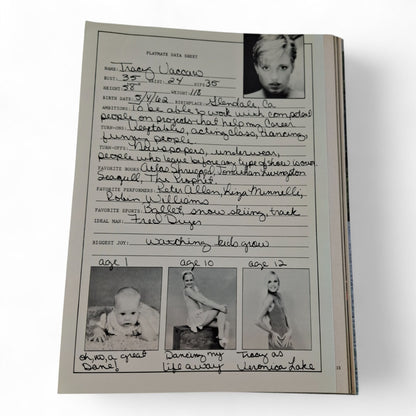 PLAYMATE DATA SHEET
NAME: Tracy Vaccaro
BUST: 35 WAIST: 24 HIPS: 35
HEIGHT: 5'8" WEIGHT: 118
BIRTH DATE: 5/4/62 BIRTHPLACE: Glendale, Ca.
AMBITIONS: To be able to work with competent
people on projects that help my career
TURN-ONS: Vegetables, acting class, dancing,
funny people
TURN-OFFS: Newspapers, underwear,
people who leave before any type of show is over
FAVORITE BOOKS: Atlas Shrugged, Jonathan Livingston
Seagull, The Prophet
FAVORITE PERFORMERS: Peter Allen, Liza Minnelli,
Robin Williams
FAVORITE SPORTS: Ballet, snow skiing, track
IDEAL MAN: Fred
BIGGEST JOY: watching kids grow
age 1 age 10 age 12
oh, no, a great Dane!
Dancing my life away
Tracy as Veronica Lake